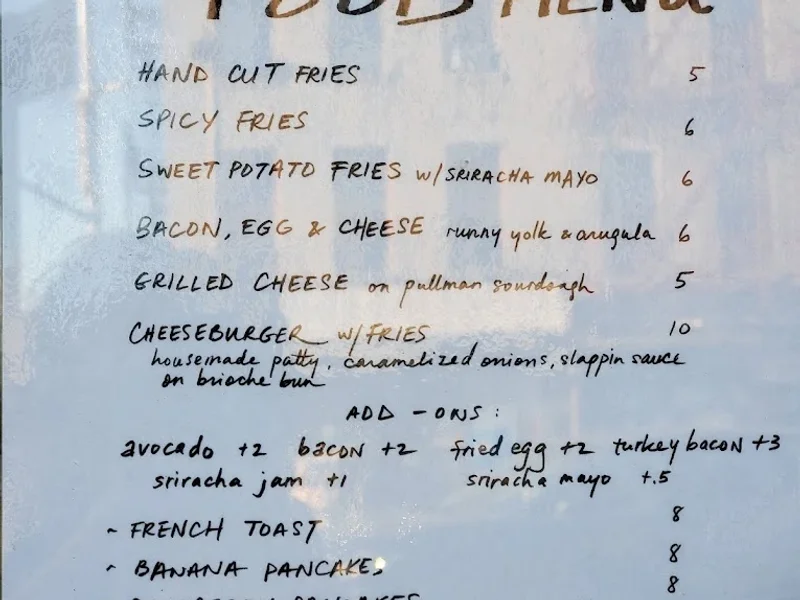 FOOD MENU
HAND CUT FRIES 5
SPICY FRIES 6
SWEET POTATO FRIES w/SRIRACHA MAYO 6
BACON, EGG & CHEESE runny yolk & arugula 6
GRILLED CHEESE on pullman sourdough 5
CHEESEBURGER w/FRIES 10
housemade patty, caramelized onions, slappin sauce
on brioche bun
ADD-ONS:
avocado +2 bacon +2 fried egg +2 turkey bacon +3
sriracha jam +1 sriracha mayo +.5
~ FRENCH TOAST 8
~ BANANA PANCAKES 8
PANCAKES 8